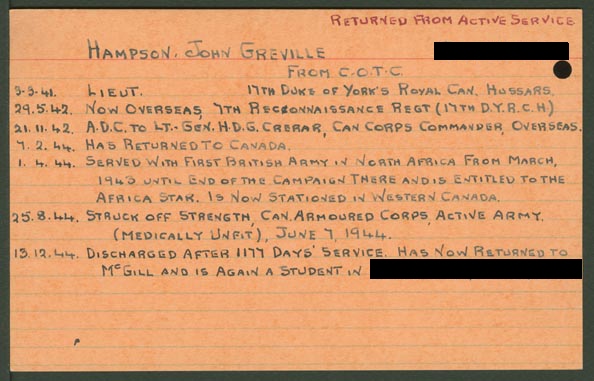 RETURNED FROM ACTIVE SERVICE
HAMPSON, JOHN GREVILLE
FROM C.O.T.C.
3-3-41. LIEUT. 17TH DUKE OF YORK'S ROYAL CAN. HUSSARS.
29.5.42. NOW OVERSEAS, 7TH RECONNAISSANCE REGT (17TH D.Y.R.C.H)
21.11.42. A.D.C. TO LT.-GEN. H.D.G. CRERAR, CAN CORPS COMMANDER, OVERSEAS.
7.2.44. HAS RETURNED TO CANADA.
1.4.44. SERVED WITH FIRST BRITISH ARMY IN NORTH AFRICA FROM MARCH,
1943 UNTIL END OF THE CAMPAIGN THERE AND IS ENTITLED TO THE
AFRICA STAR. IS NOW STATIONED IN WESTERN CANADA.
25.8.44. STRUCK OFF STRENGTH, CAN. ARMOURED CORPS, ACTIVE ARMY,
(MEDICALLY UNFIT), JUNE 7, 1944.
13.12.44. DISCHARGED AFTER 1177 DAYS' SERVICE. HAS NOW RETURNED TO
MCGILL AND IS AGAIN A STUDENT IN